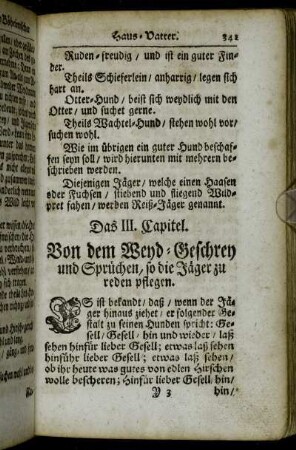 Haus-Vatter. 341
Ruden-freudig / und ist ein guter Fin-
der.
Theils Schieferlein / anharrig / legen sich
hart an.
Otter-Hund / beist sich weydlich mit den
Otter / und suchet gerne.
Theils Wachtel-Hund / stehen wohl vor /
suchen wohl.
Wie im übrigen ein guter Hund beschaf-
fen seyn soll / wird hierunten mit mehrern be-
schrieben werden.
Diejenigen Jäger / welche einen Haasen
oder Fuchsen / stiebend und fliegend Wild-
pret fahen / werden Reiß-Jäger genannt.
Das III. Capitel.
Von dem Weyd-Geschrey
und Sprüchen, so die Jäger zu
reden pflegen.
ES ist bekandt / daß / wenn der Jä-
ger hinaus ziehet / er folgender Ge-
stalt zu seinen Hunden spricht: Ge-
sell / Gesell / hin und wieder / laß
sehen hinfür lieber Gesell; etwas laß sehen
hinführ lieber Gesell; etwas laß sehen /
ob ihr heute was gutes von edlen Hirschen
wolle bescheren; Hinfür lieber Gesell hin /
Y 3 hin /